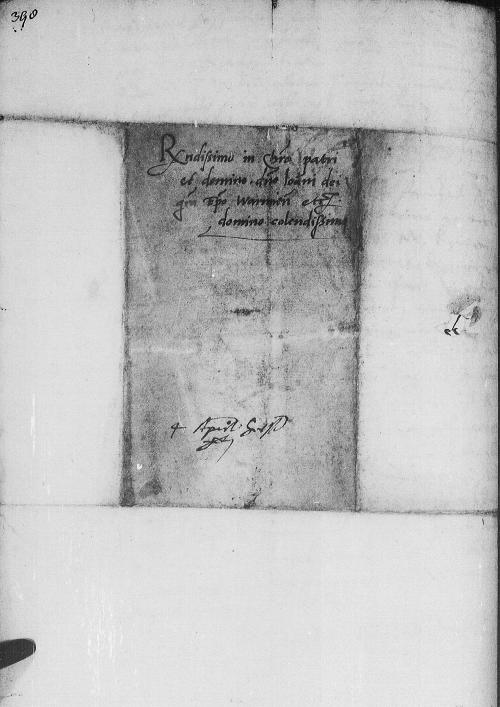 398
Rxndissimo in chro patri
et domino dno Ioāni dei
gra Epo Warmieñ etc
domino colendissimo
4 Aprilis